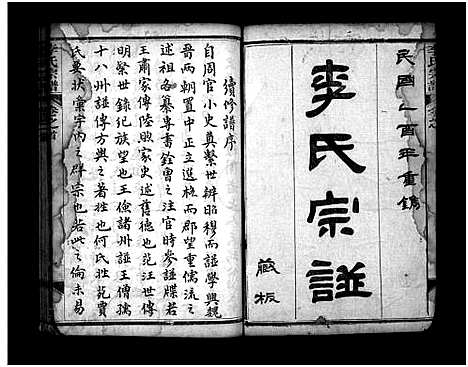 民國乙酉年重鐫
李氏宗譜
藏板
續修譜序
自周官小史奠繫世辨昭穆而譜學興魏
晉兩朝置中正立選格而郡望重儒流之
述祖各纂專書銓曹之注官時參譜牒若
王肅家傳陸敗家史述舊德也范汪世傳
明繫世錄紀族望也王儉諸州譜王僧孺
十八州譜傳方輿之著姓也何氏姓苑賈
氏要狀彙宇內之群宗也若此之倫未易
李氏宗譜